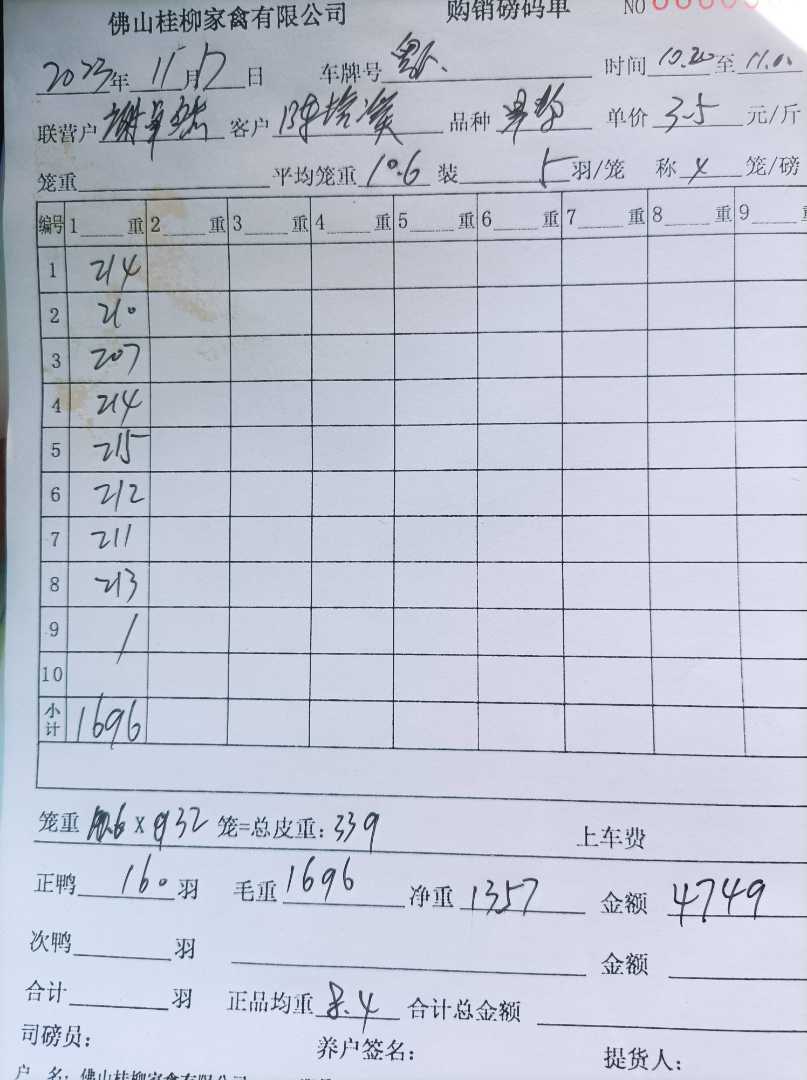 佛山桂柳家禽有限公司 购销磅码单 NO
2023年 11月17日 车牌号 时间 10.20 至 11.00
联营户 客户 品种 单价 3.5 元/斤
笼重 平均笼重 10.6 装 5 羽/笼 称 4 笼/磅
编号 1 重 2 重 3 重 4 重 5 重 6 重 7 重 8 重 9
1 214
2 210
3 207
4 214
5 215
6 212
7 211
8 213
9 /
10
小计 1696
笼重 10.6 X 32 笼=总皮重: 339 上车费
正鸭 160 羽 毛重 1696 净重 1357 金额 4749
次鸭 羽 金额
合计 羽 正品均重 8.4 合计总金额
司磅员: 养户签名: 提货人:
户 名: 佛山桂柳家禽有限公司